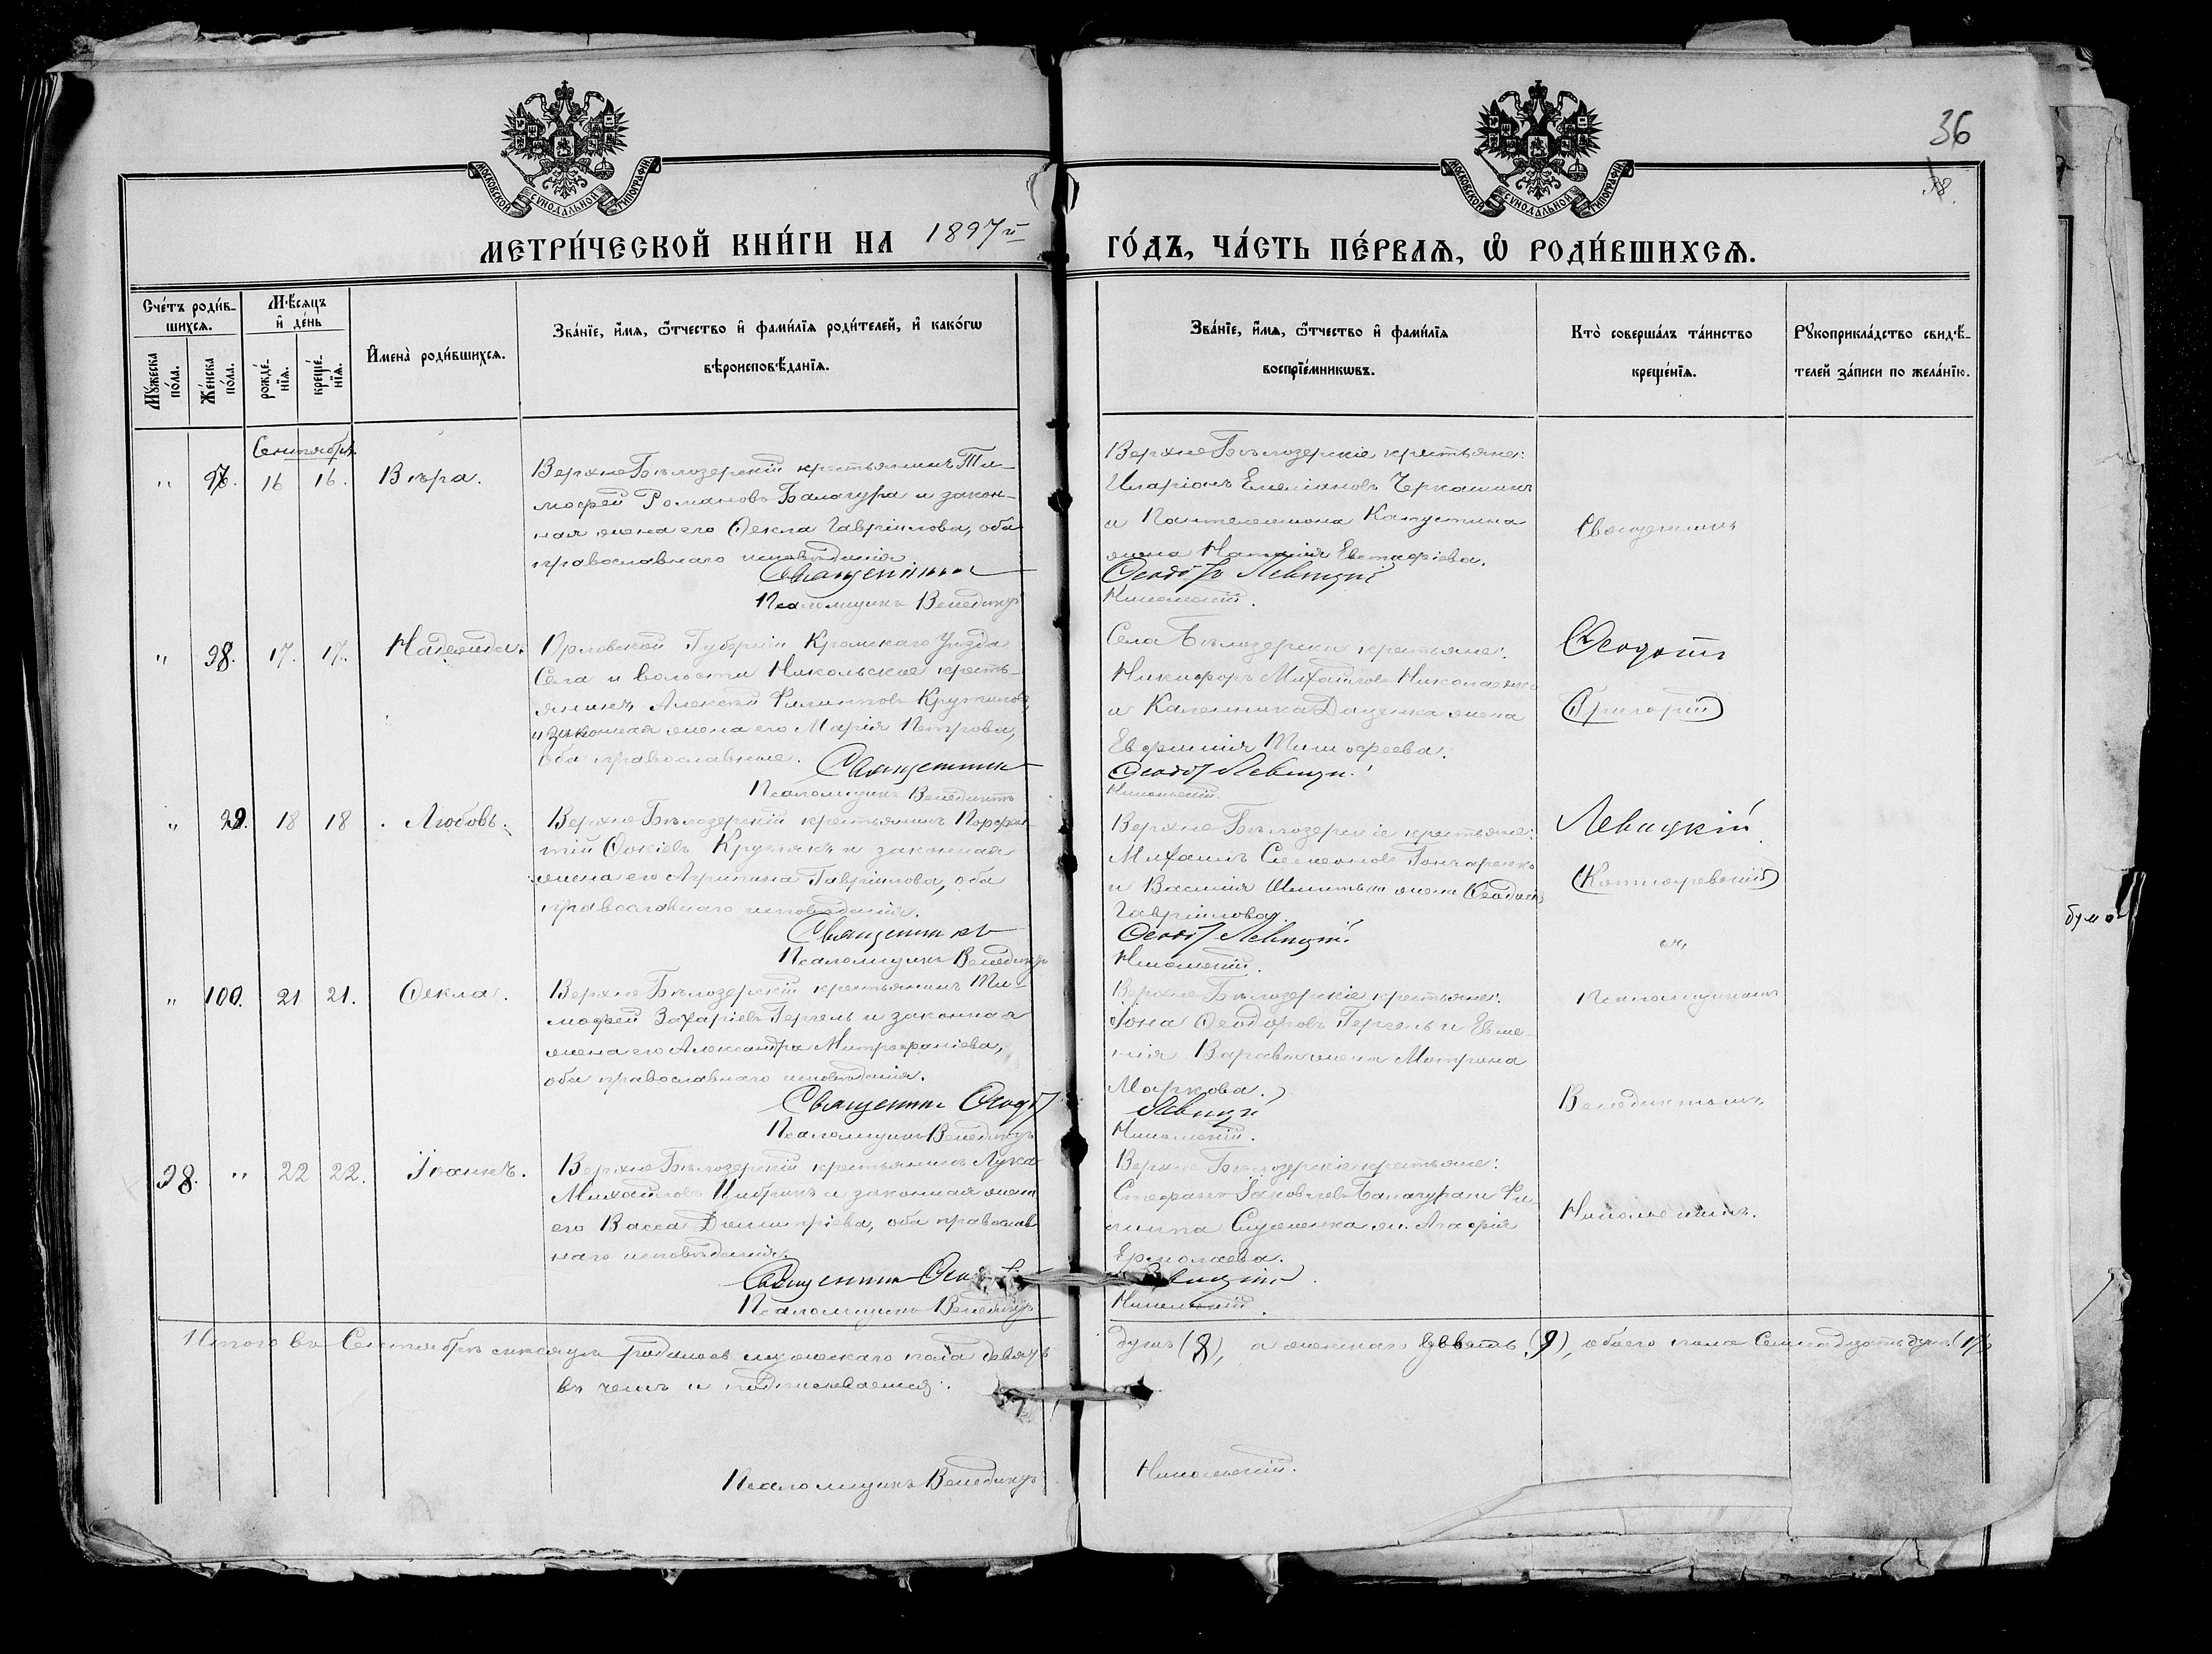 36
38.
МОСКОВСКОЙ СѴНОДАЛЬНОЙ ТИПОГРАФІИ
МОСКОВСКОЙ СѴНОДАЛЬНОЙ ТИПОГРАФІИ
МЕТРИ́ЧЕСКОЙ КНИ́ГИ НА 1897й ГО́ДЪ, ЧА́СТЬ ПЕ́РВАѦ, Ѽ РОДИ́ВШИХСѦ.
Сче́тъ роди́в-
шихсѧ.
Мѣ́сѧцъ
и҆ де́нь
Мꙋ́жеска по́ла.
Же́нска по́ла.
рожде́-нїѧ.
креще́-нїѧ.
И҆мена̀ роди́вшихсѧ.
Зва́нїе, и҆́мѧ, ѻ҆́тчество и҆ фами́лїѧ роди́телей, и҆ како́гѡ
вѣроисповѣ́данїѧ.
Зва́нїе, и҆́мѧ, ѻ҆́тчество и҆ фами́лїѧ
воспрїе́мникѡвъ.
Кто̀ соверша́лъ та́инство
креще́нїѧ.
Рꙋкоприкла́дство свидѣ́-
телей за́писи по жела́нїю.
Сентябрь.
" 97. 16 16. Вѣра.
Верхне Бѣлозерскій крестьянинъ Ти-
мофей Романовъ Балагура и закон-
ная жена его Ѳекла Гавріилова, оба
православнаго исповѣданія.
Священникъ
Псаломщикъ Венедиктъ
Верхне Бѣлозерскіе крестьяне:
Иларіонъ Емеліановъ Черкашинъ
и Пантелеимона Капустина
жена Наталія Евстафіева.
Ѳеодотъ Левицкій
Никольскій.
Священникъ
" 98. 17. 17. Надежда.
Орловской Губерніи Кромскаго Уѣзда
Села и волости Никольское кресть-
янинъ Алексѣй Филиповъ
и законная жена его Марія Петрова,
оба православные.
Священникъ
Псаломщикъ Венедиктъ
Села Бѣлозерки крестьяне:
Никифоръ Михайловъ Николаенко
и Даценка жена
Евфимія Тимофеева.
Ѳеодотъ Левицкій
Никольскій.
Ѳеодотъ
(Григорій)
" 99. 18 18 Любовь.
Верхне Бѣлозерскій крестьянинъ Порфи-
рій Кругликъ и законная
жена его Агрипина Гавріилова, оба
православнаго исповѣданія.
Священникъ
Псаломщикъ Венедиктъ
Верхне Бѣлозерскіе крестьяне:
Михаилъ Симеоновъ Гончаренко
и Василія жена Ѳеодосія
Гавріилова.
Ѳеодотъ Левицкій
Никольскій.
Левицкій
(Котляревскій)
съ
" 100. 21 21. Ѳекла.
Верхне Бѣлозерскій крестьянинъ Ти-
мофей Захаріевъ Гергель и законная
жена его Александра Митрофаніева,
оба православнаго исповѣданія.
Священникъ Ѳеодотъ
Псаломщикъ Венедиктъ
Верхне Бѣлозерскіе крестьяне:
Іона Ѳеодоровъ Гергель и Евме-
нія жена Матрина
Маркова.
Левицкій
Никольскій.
Псаломщикомъ
Венедиктомъ
98. " 22 22. Іоаннъ.
Верхне Бѣлозерскій крестьянинъ Лука
Михайловъ и законная жена
его Васса Димитріева, оба православ
наго исповѣданія.
Священникъ Ѳеодотъ
Псаломщикъ Венедиктъ
Верхне Бѣлозерскіе крестьяне:
Стефанъ Іаковлевъ Балагура и Фи-
липпа ж. Агафія
Ермолаева.
Левицкій.
Никольскій.
Никольскимъ.
Итого въ Сентябрѣ мѣсяцѣ родилось мужескаго пола
душъ (8), а женскаго девять (9), обоего пола Семнадцать душъ (17)
въ чемъ и подписываемся:
Псаломщикъ Венедиктъ Никольскій.